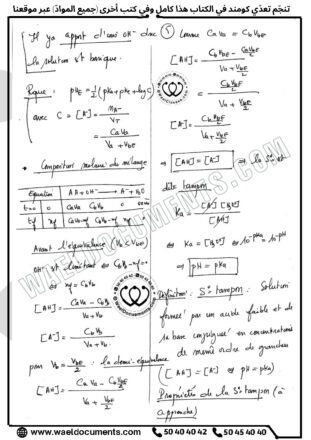 تنجّم تعدّي كومند في الكتاب هذا كامل وفي كتب أخرى (جميع الموادّ) عبر موقعنا
Il y a apport d'ions OH⁻ donc
la solution est basique.
Rque : pHE = 1/2 (pKa + pKe + log C)
avec C = [A⁻] = nA⁻ / VT
= CaVa / (Va + VbE)
• Composition molaire du mélange
Equation AH + OH⁻ → A⁻ + H2O
t=0 CaVa CbVb 0
tf
Avant l'équivalence (Vb < VbE)
OH⁻ est limitant ⇔ CbVb - xf = 0
⇔ xf = CbVb
[AH] = (CaVa - CbVb) / (Va + Vb)
[A⁻] = CbVb / (Va + Vb)
pour Vb = VbE/2 : la demi-équivalence
[AH] = (CaVa - Cb VbE/2) / (Va + VbE/2)
comme CaVa = CbVbE
[AH] = (CbVbE - CbVbE/2) / (Va + VbE/2)
= (CbVbE/2) / (Va + VbE/2)
[A⁻] = (CbVbE/2) / (Va + VbE/2)
⇒ [AH] = [A⁻] ⇔ la S° est
dite tampon
Ka = [A⁻][H3O⁺] / [AH]
⇔ Ka = [H3O⁺] ⇔ 10^-pKa = 10^-pH
⇒ pH = pKa
Définition : S° tampon : Solution
formée par un acide faible et de
sa base conjuguée en concentrations
de même ordre de grandeur
([AH] = [A⁻] ⇔ pH = pKa).
Propriétés de la S° tampon (à
apprendre)
WAELDOCUMENTS.COM
www.waeldocuments.com 50 40 40 42 50 45 40 40